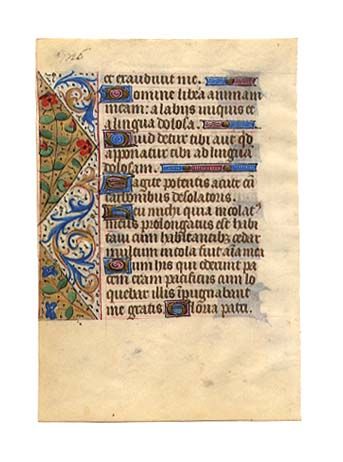 et exaudivit me.
Domine libera animam
meam: a labijs iniquis et
a lingua dolosa.
Quid detur tibi aut qd
apponatur tibi ad lingua
dolosam.
Sagitte potentis acute cū
carbonibus desolatorijs.
Heu michi quia incolat
meus prolongatus est habi
tavi cum habitantibus cedar
multum incola fuit aīa mea
Cum his qui oderunt pa
cem eram pacificus cum lo
quebar illis īpugnabant
me gratis Gloria patri.